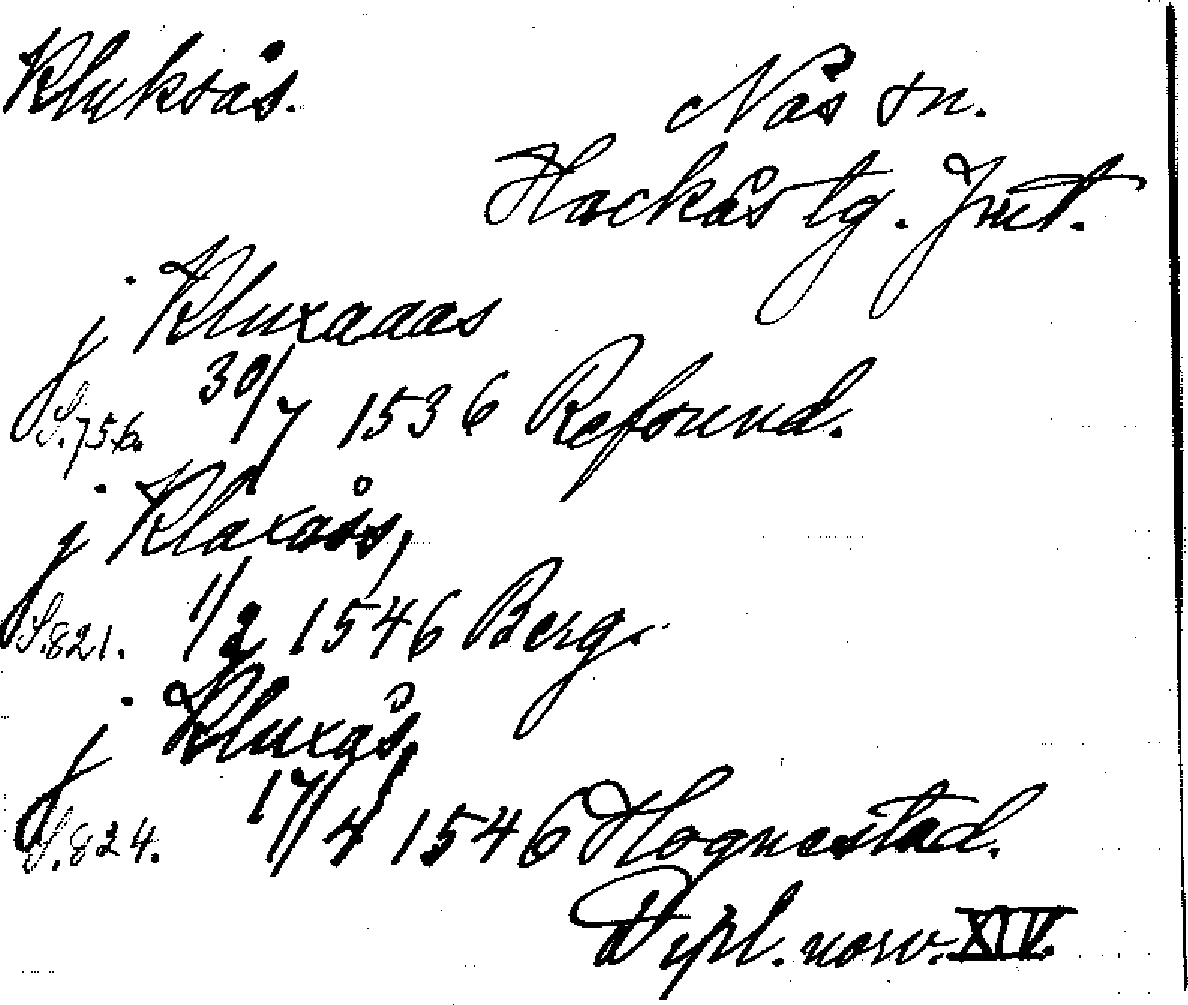 Kluksås. Näs sn.
Hackås tg. Jmt.
j Kluxaaas
S.756. 30/7 1536 Refsund.
j Klaxåss,
S.821. 1/2 1546 Berg.
j Kluxås,
S.824. 17/4 1546 Hognestad.
Dipl. norv. XIV.